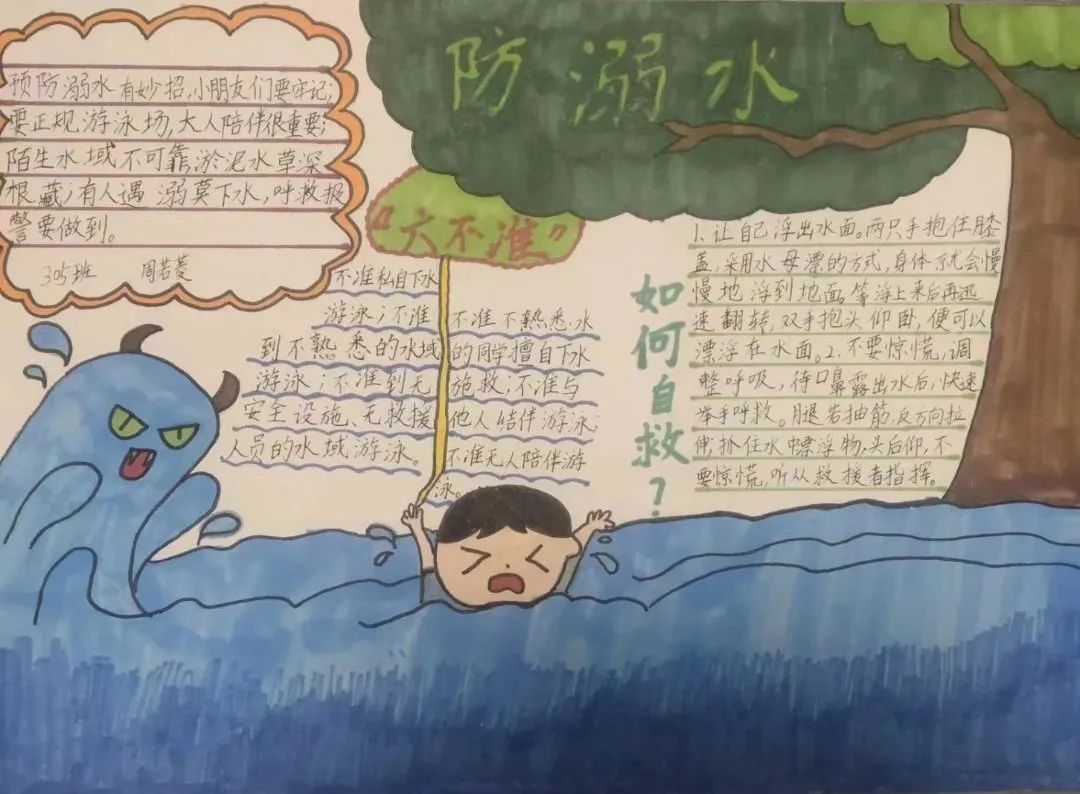 防溺水
预防溺水有妙招,小朋友们要牢记;
要正规游泳场,大人陪伴很重要;
陌生水域不可靠,淤泥水草深
根藏;有人遇溺莫下水,呼救报
警要做到。
305班 周若菱
“六不准”
不准私自下水
游泳;不准
到不熟悉的水域
游泳;不准到无
安全设施、无救援
人员的水域游泳。
不准不熟悉水
的同学擅自下水
施救;不准与
他人结伴游泳;
不准无人陪伴游
泳。
如何自救?
1.让自己浮出水面。两只手抱住膝
盖,采用水母漂的方式,身体就会慢
慢地浮到地面。等浮上来后再迅
速翻转,双手抱头仰卧,便可以
漂浮在水面。2.不要惊慌,调
整呼吸,待口鼻露出水后,快速
举手呼救。腿若抽筋,反方向拉
伸,拎住水中漂浮物,头后仰,不
要惊慌,听从救援者指挥。